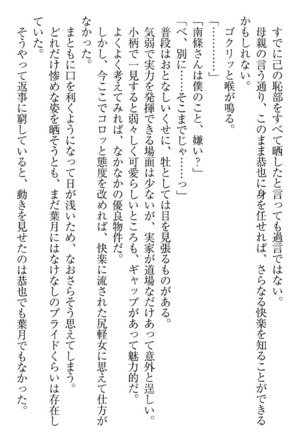 すでに己の恥部をすべて晒したと言っても過言ではない。
母親の言う通り、このまま恭也に身を任せれば、さらなる快楽を知ることができる
かもしれない。
ゴクリッと喉が鳴る。
「…………」
「南條さんは僕のこと、嫌い？」
「べ、別に……そこまでじゃ……っ」
普段はおとなしいくせに、牡としては目を見張るものがある。
気弱で実力を発揮できる場面は少ないが、実家が道場なだけあって意外と逞しい。
小柄で一見すると弱々しく可愛らしいところも、ギャップがあって魅力的だ。
よくよく考えてみれば、なかなかの優良物件だ。
しかし、今ここでコロッと態度を改めれば、快楽に流された尻軽女に思えて仕方が
なかった。
まともに口を利くようになって日が浅いため、なおさらそう思えてしまう。
どれだけ惨めな姿を晒そうとも、まだ葉月にはなけなしのプライドくらいは存在し
ていた。
そうやって返事に窮していると、動きを見せたのは恭也でも葉月でもなかった。